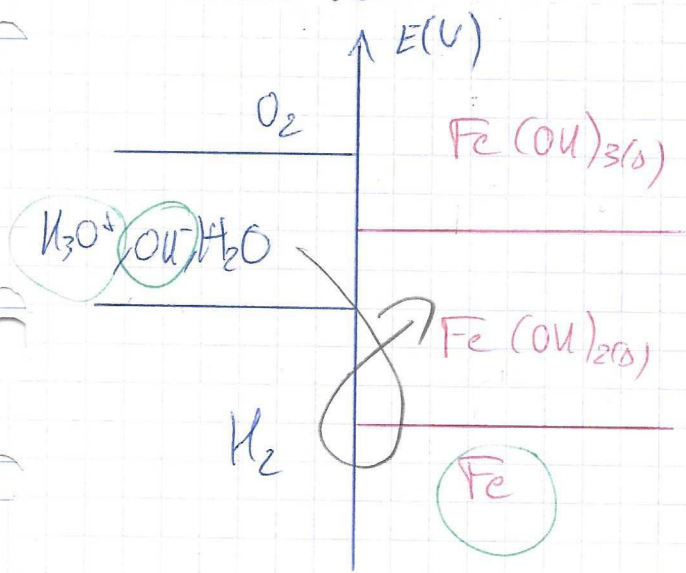 E(V)
O₂
Fe(OH)₃(s)
H₃O⁺, OH⁻, H₂O
Fe(OH)₂(s)
H₂
Fe